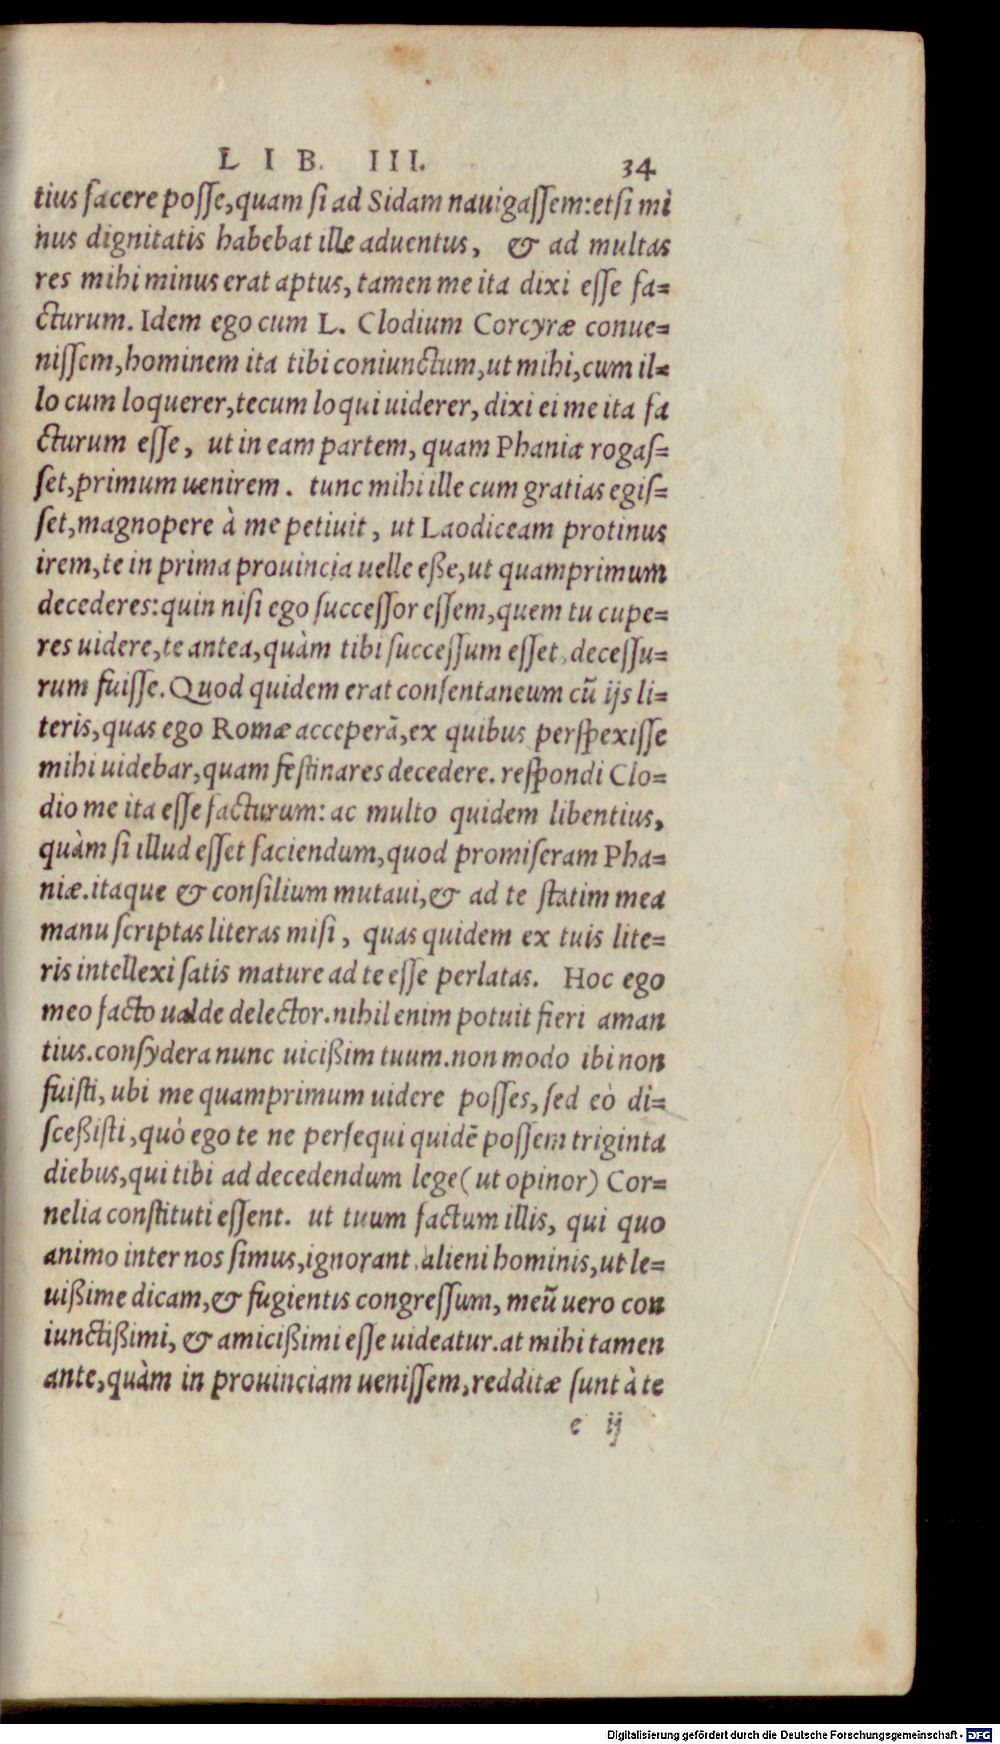 LIB. III. 34
tius facere posse, quam si ad Sidam nauigassem: etsi mi
nus dignitatis habebat ille aduentus, & ad multas
res mihi minus erat aptus, tamen me ita dixi esse fa=
cturum. Idem ego cum L. Clodium Corcyræ conue=
nissem, hominem ita tibi coniunctum, ut mihi, cum il=
lo cum loquerer, tecum loqui uiderer, dixi ei me ita fa
cturum esse, ut in eam partem, quam Phania rogas=
set, primum uenirem. tunc mihi ille cum gratias egis=
set, magnopere à me petiuit, ut Laodiceam protinus
irem, te in prima prouincia uelle eße, ut quamprimum
decederes: quin nisi ego successor essem, quem tu cupe=
res uidere, te antea, quàm tibi successum esset, decessu=
rum fuisse. Quod quidem erat consentaneum cũ ijs li=
teris, quas ego Romæ acceperã, ex quibus perspexisse
mihi uidebar, quam festinares decedere. respondi Clo=
dio me ita esse facturum: ac multo quidem libentius,
quàm si illud esset faciendum, quod promiseram Pha=
niæ. itaque & consilium mutaui, & ad te statim mea
manu scriptas literas misi, quas quidem ex tuis lite=
ris intellexi satis mature ad te esse perlatas. Hoc ego
meo facto ualde delector. nihil enim potuit fieri aman
tius. consydera nunc uicißim tuum. non modo ibi non
fuisti, ubi me quamprimum uidere posses, sed eò di=
sceßisti, quò ego te ne persequi quidẽ possem triginta
diebus, qui tibi ad decedendum lege (ut opinor) Cor=
nelia constituti essent. ut tuum factum illis, qui quo
animo inter nos simus, ignorant, alieni hominis, ut le=
uißime dicam, & fugientis congressum, meũ uero con
iunctißimi, & amicißimi esse uideatur. at mihi tamen
ante, quàm in prouinciam uenissem, redditæ sunt à te
e ij
Digitalisierung gefördert durch die Deutsche Forschungsgemeinschaft - DFG